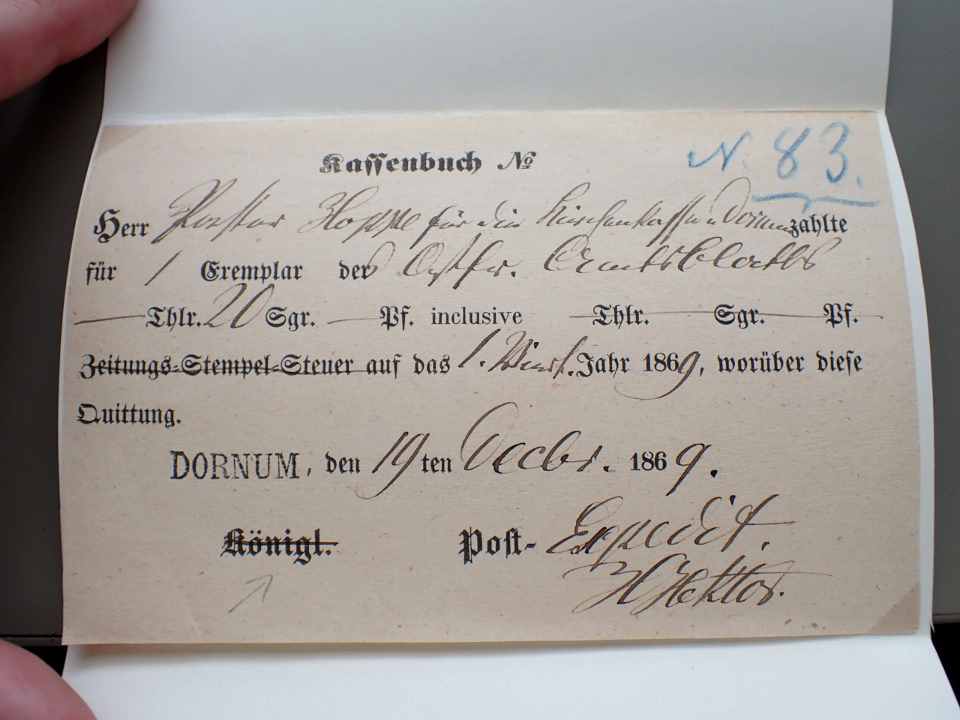 Kassenbuch № N. 83.
Herr Pastor Hoppe für die Kirchenkasse Dornum zahlte
für 1 Exemplar des Ostfr. Amtsblatts
Thlr. 20 Sgr. — Pf. inclusive — Thlr. Sgr. Pf.
Zeitungs-Stempel-Steuer auf das 1. Jahr 1869, worüber diese
Quittung.
DORNUM, den 19ten Decbr. 1869.
Königl. Post-Expedit.